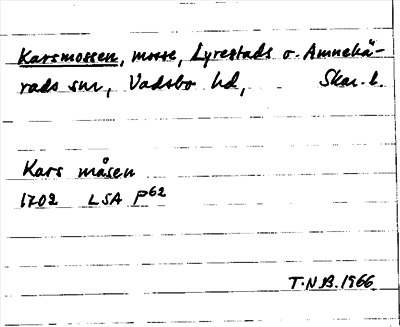 Karsmossen, mosse, Lyrestads o. Amnehä-
rads snr, Vadsbo hd, Skar. l.
Kars måsen
1702 LSA P62
T.N.B. 1966